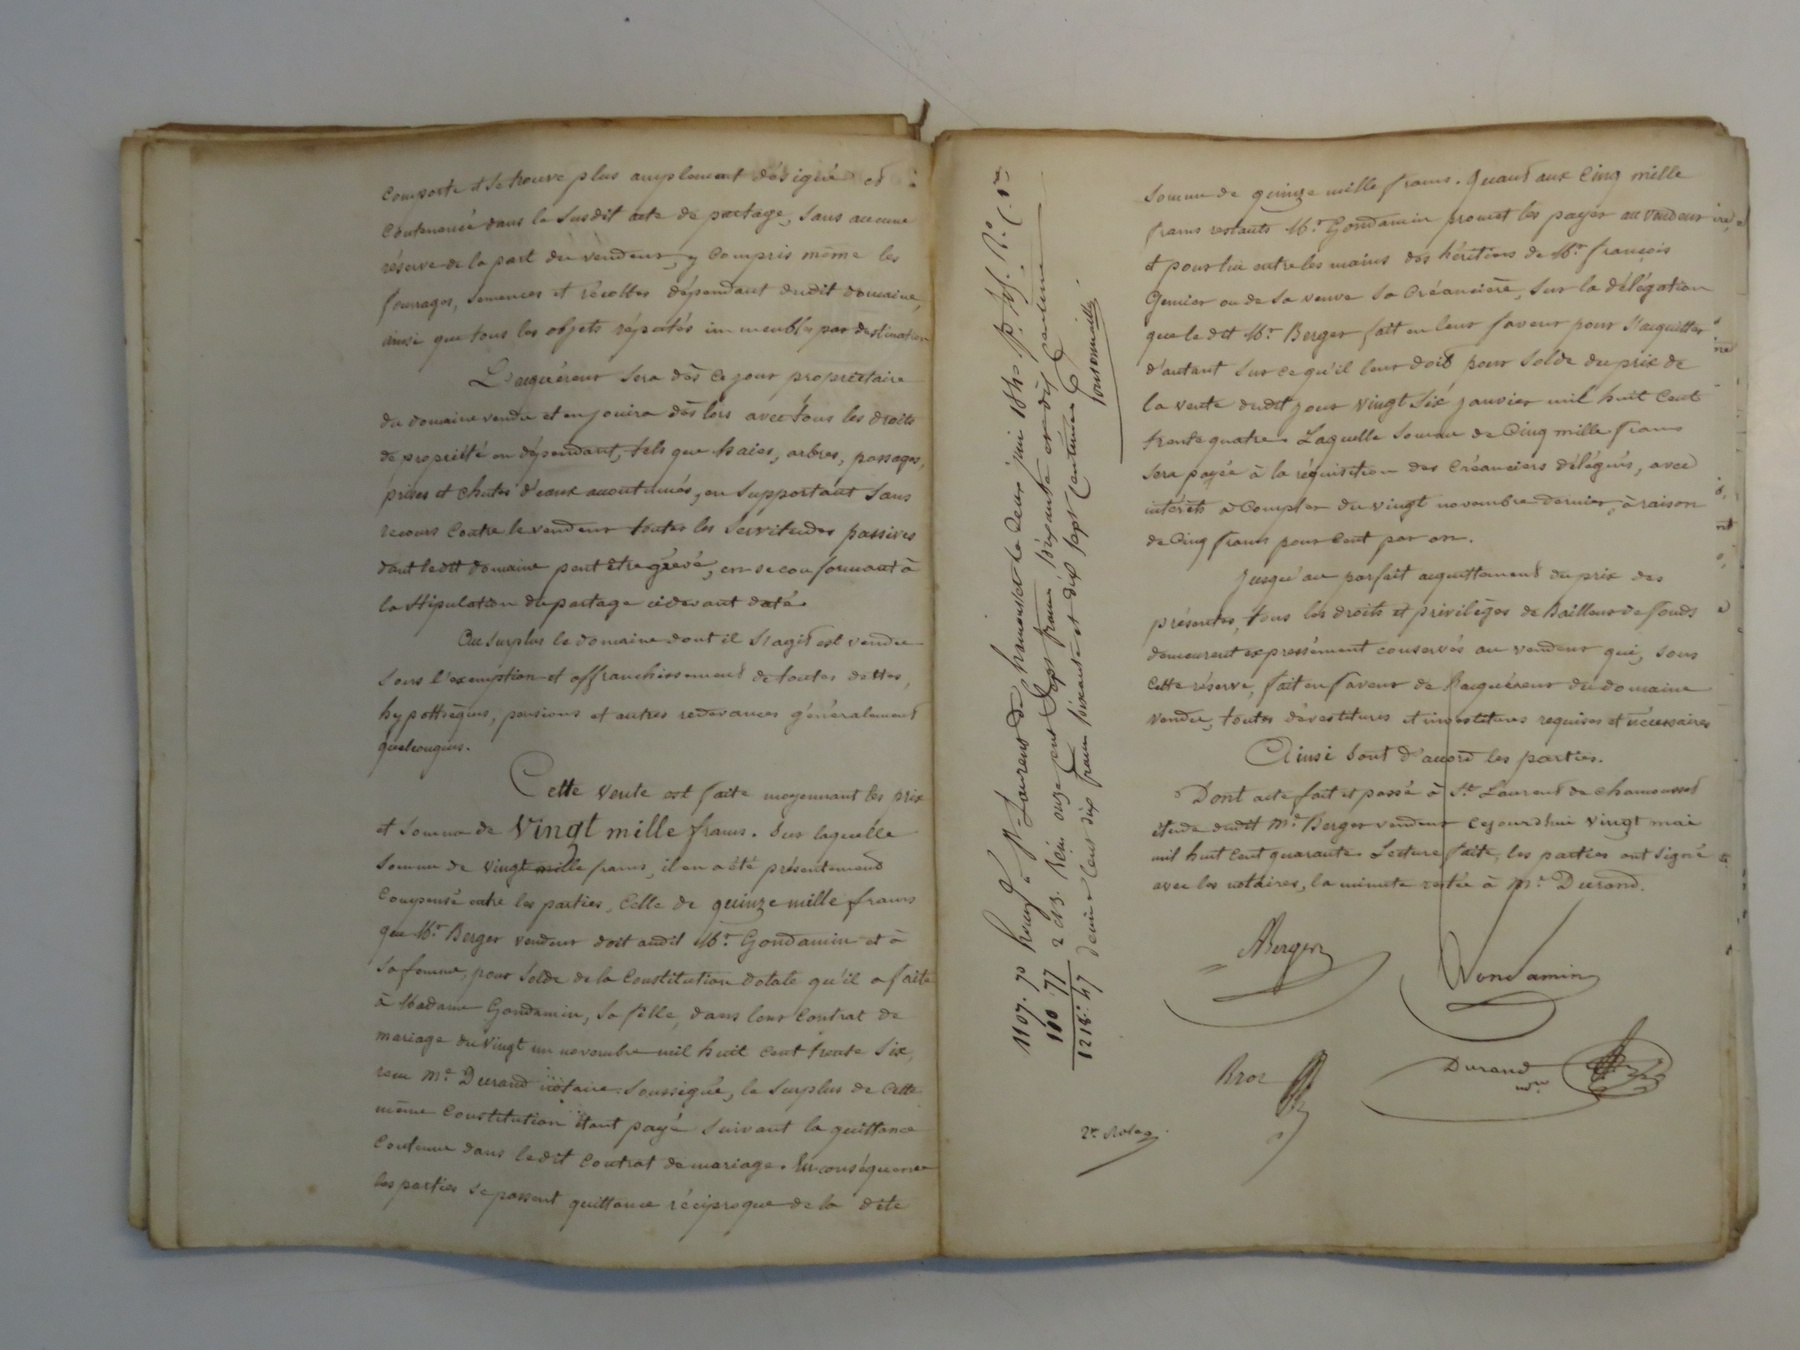 comporte et se trouve plus amplement désigné et
contenancé dans le susdit acte de partage, sans aucune
réserve de la part du vendeur, y compris même les
fourrages, semences et récoltes dépendant dudit domaine,
ainsi que tous les objets réputés immeubles par destination
L'acquéreur sera dès ce jour propriétaire
du domaine vendu et en jouira dès lors avec tous les droits
de propriété en dépendant, tels que haies, arbres, passages,
prises et chutes d'eaux accoutumés, en supportant sans
recours contre le vendeur toutes les servitudes passives
dont ledit domaine peut être grévé, en se conformant à
la stipulation du partage cidevant daté.
Au surplus le domaine dont il s'agit est vendu
sous l'exemption et affranchissement de toutes dettes,
hypothèques, pensions et autres redevances généralement
quelconques.
Cette vente est faite moyennant les prix
et somme de Vingt mille francs. Sur laquelle
somme de vingt mille francs, il en a été présentement
compensé entre les parties, celle de quinze mille francs
que Mr. Berger vendeur doit audit Mr. Gondamin et à
sa femme, pour solde de la constitution dotale qu'il a faite
à Madame Gondamin, sa fille, dans leur contrat de
mariage du vingt un novembre mil huit cent trente six,
reçu Me. Durand notaire soussigné, le surplus de cette
même constitution étant payé suivant la quittance
contenue dans ledit contrat de mariage. En conséquence
les parties se passent quittance réciproque de la dite
somme de quinze mille francs. Quant aux cinq mille
francs restants Mr. Gondamin promet les payer au vendeur
et pour lui entre les mains des héritiers de Mr. françois
Genier ou de sa veuve sa créancière, sur la délégation
que le dit Mr. Berger fait en leur faveur pour s'acquitter
d'autant sur ce qu'il leur doit pour solde du prix de
la vente dudit jour vingt six janvier mil huit cent
trente quatre. Laquelle somme de cinq mille francs
sera payée à la réquisition des créanciers délégués, avec
intérêts à compter du vingt novembre dernier, à raison
de cinq francs pour cent par an.
Jusqu'au parfait acquittement du prix des
présentes, tous les droits et privilèges de Bailleur de fonds
demeurent expressément conservés au vendeur qui, sous
cette réserve, fait en faveur de l'acquéreur du domaine
vendu, toutes dévestitures et investitures requises et nécessaires
Ainsi sont d'accord les parties.
Dont acte fait et passé à St. Laurent de chamousset
étude dudit Me. Berger vendeur cejourdhui vingt mai
mil huit cent quarante. Lecture faite, les parties ont signé
avec les notaires, la minute restée à Me. Durand.
ABerger
Gondamin
Durand
2e. Rôle
1107. 70
110 77
1218: 47
à St. Laurent de chamousset le deux juin 1840
onze cent sept francs soixante et dix centimes
dixième cent dix francs soixante et dix sept centimes